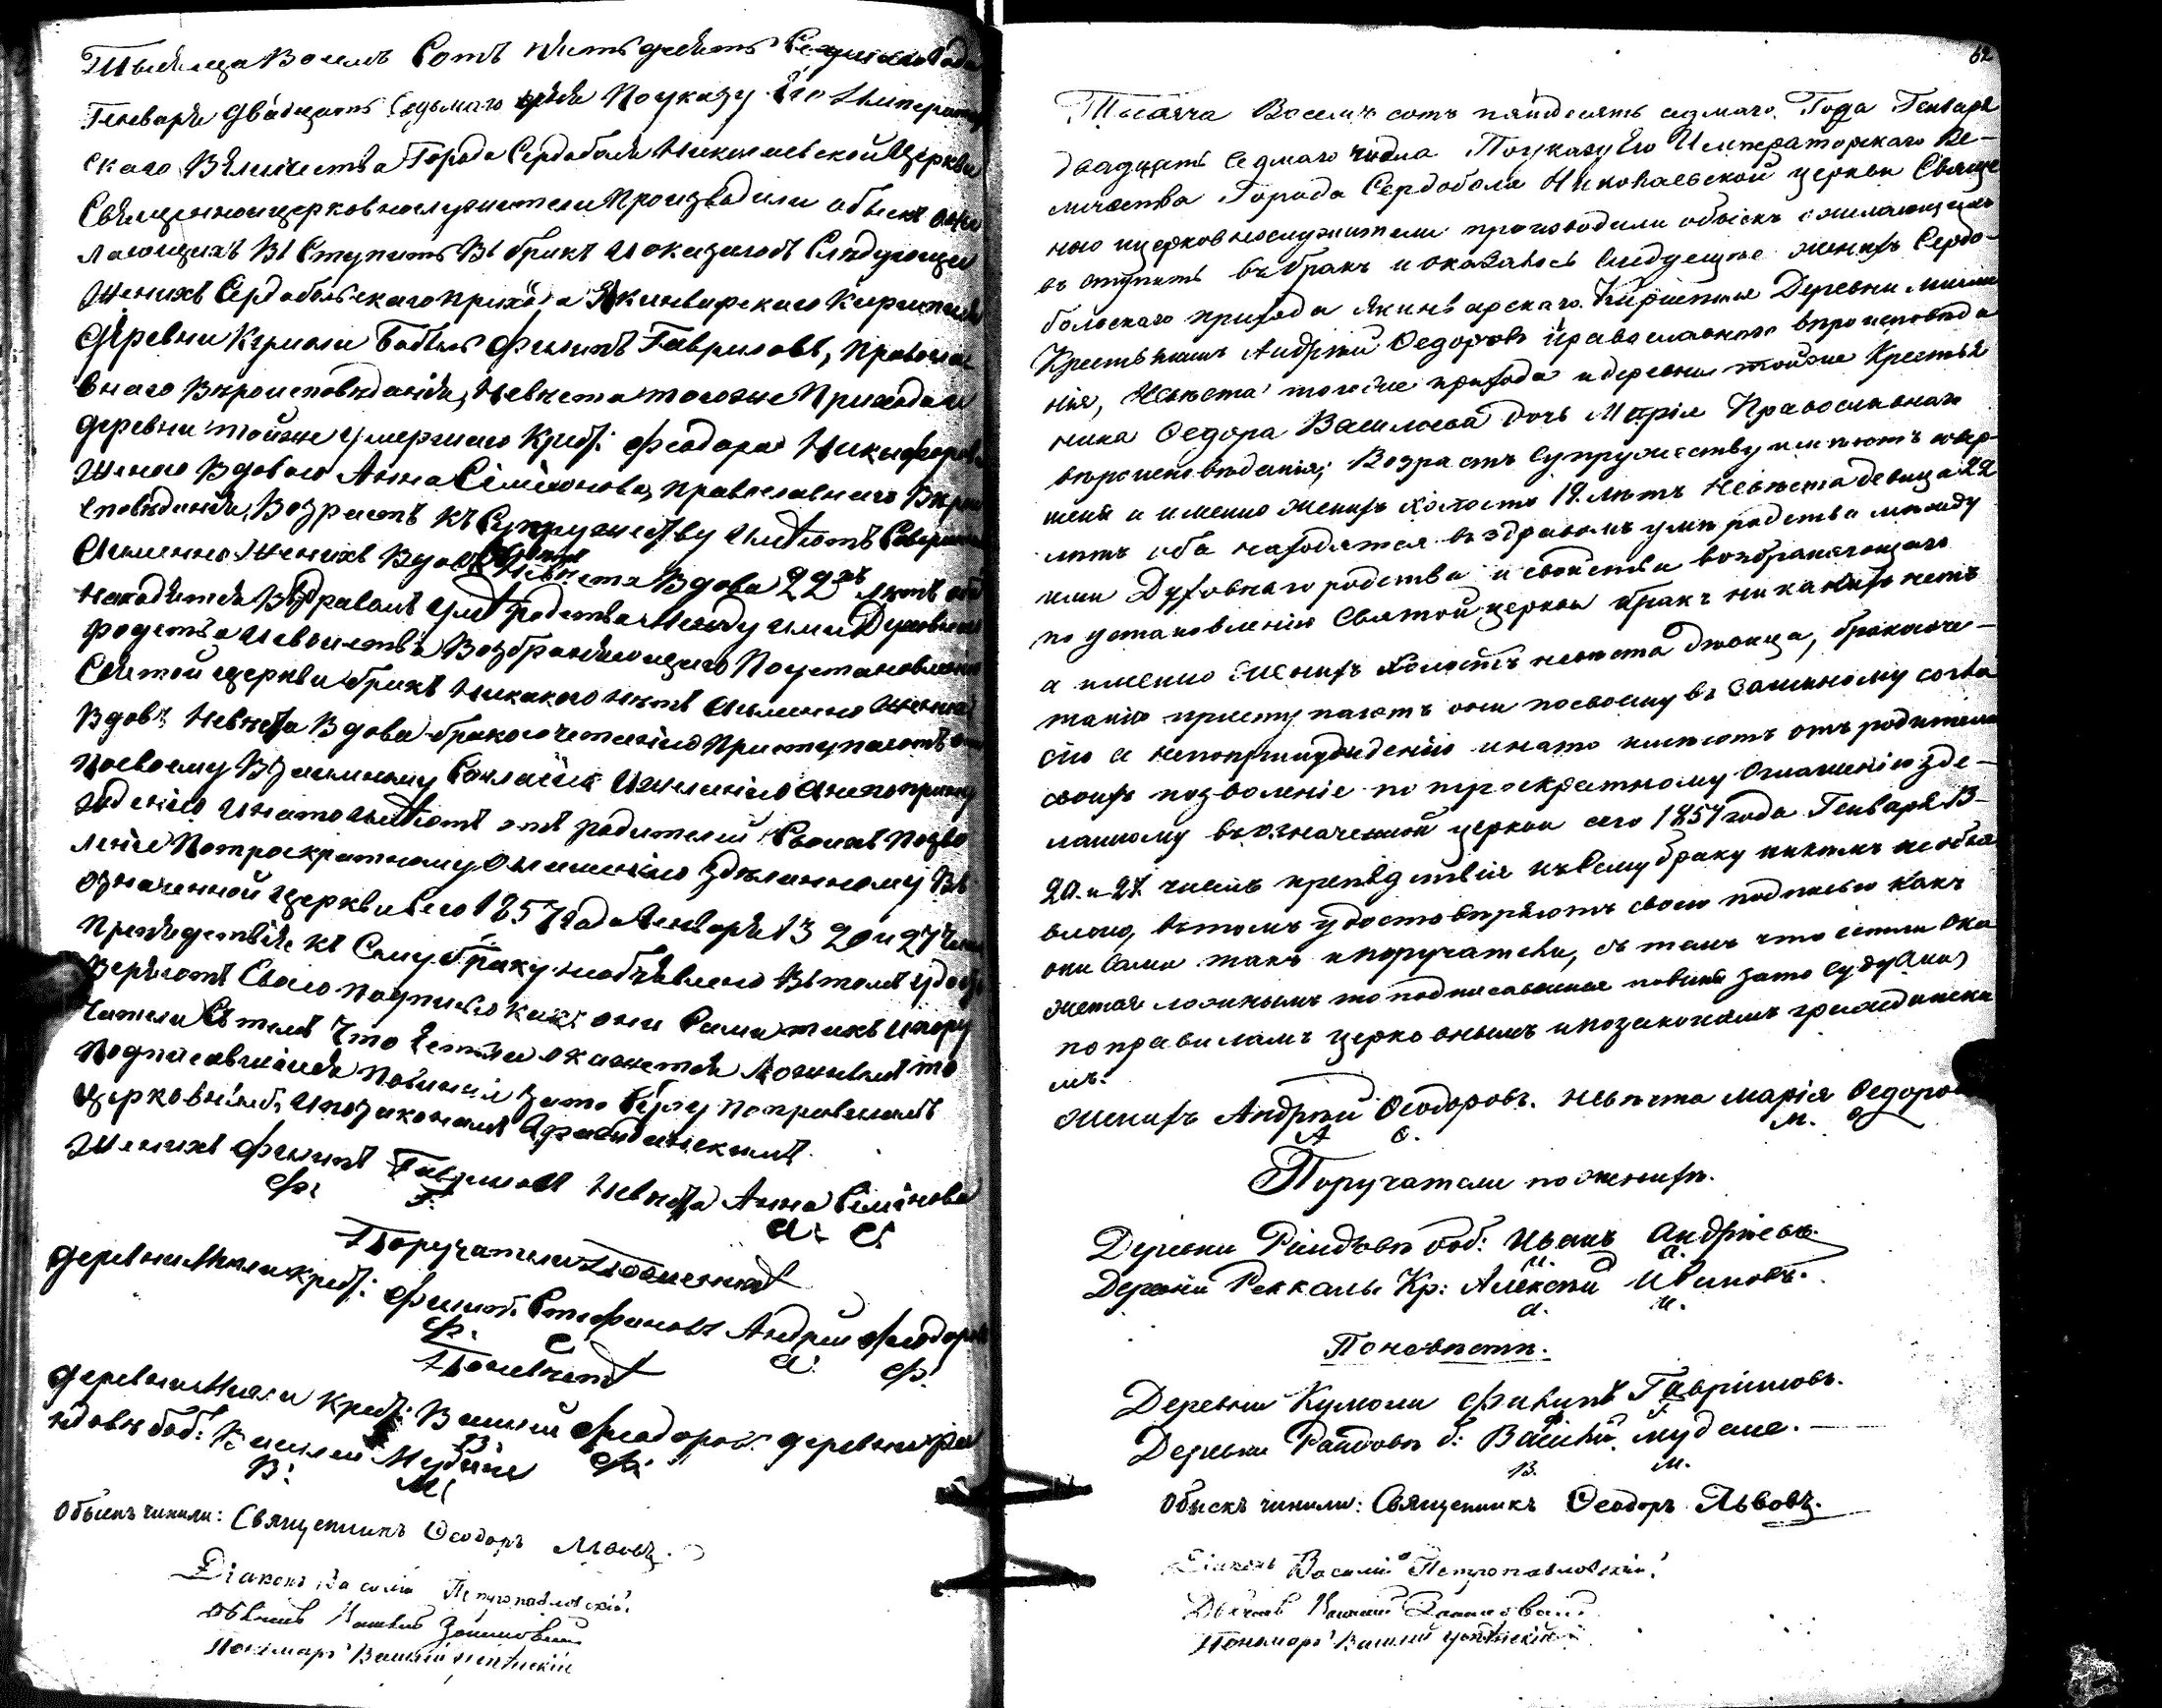 Тысяща Восемъ Сотъ пять десятъ Седмаго Года
Генваря двадцать Седьмаго дня По указу Его Император
скаго Величества Города Сердоболя Николаевской Церкви
Священно и церковнослужители Производили обыскъ о же
лающихъ Въ Ступить Въ бракъ и оказалось Следующее
Женихъ Сердобольскаго прихода Якимварскаго Кирхшпиля
деревни Кумоли Бобыль Филипъ Гавриловъ, Правосла
внаго Вероисповеданія, Невеста тогоже Прихода и
деревни тойже умершаго Крест: Феодора Никифорова
Жена Вдова Анна Симіонова, православнаго Верои
споведанія, Возрастъ къ Супружеству Имеютъ Совершен
Аименно Женихъ Вдовъ невеста Вдова 22хъ летъ оба
Находятся Въ здравомъ уме родства Между ими Духовнаго
родства и свойства Возбраняющаго По установленію
Святой церкви бракъ Никакого нетъ Аименно женихъ
Вдовъ Невеста Вдова бракосочетанію Приступаютъ они
По своему Взаимному Согласію и желанію а не по прину
жденію и на то имеютъ отъ родителей Своихъ Позво
леніе По троекратному оглашенію зделанному Въ
означенной церкви Сего 1857 года Генваря 13 20 и 27 числ
Препядствія къ Сему браку необъявлено Въ томъ удосто
Веряютъ Своею подписью какъ они Сами такъ и пору
чители Съ темъ Что Естьли окажется Ложнымъ то
Подписавшіися повинни за то Суду по правиламъ
Церковнымъ и по законамъ Гражданскимъ
Женихъ Филипъ Гавриловъ Невеста Анна Симіонова
Ф: Г: А: С:
Поручатели По женихе
деревни Мюли крест: Филипъ Стефановъ Андрей Феодоров
Ф. С А: Ф:
По невесте
деревни Мюли крест: Василій Феодоровъ деревни Ра
ндовы боб: Василей Мудине
В: М: В Ф:
Обыскъ чинили: Священникъ Ѳеодоръ Львовъ.
Діаконъ Василій Петропавловскій.
Пономарь Василій
62
Тысяча Восемь сотъ пятдесятъ седмаго Года Генваря
двадцать Седмаго числа По указу Его Императорскаго Ве-
личества Города Сердоболя Николаевской церкви Свяще
нно и церковнослужители производили обыскъ о желающихъ
въ ступить въ бракъ и оказалось следущее женихъ Сердо-
больскаго прихода Якимварскаго Кирхшпиля Деревни Мюли
Крестьянинъ Андрей Ѳедоровъ православнаго вероисповеда
нія, Невеста тогоже прихода и деревни тойже Крестья
нина Ѳедора Васильева дочь Марія Православнаго
вероисповеданія; Возрастъ Супружеству имеютъ совер-
шенн а именно женихъ холостъ 19. летъ невеста девица 22
летъ оба находятся въ здравомъ уме родства между
ими Духовнаго родства и свойства возбраняющаго
по установленію Святой церкви бракъ никакихъ нетъ
а именно женихъ холостъ невеста девица, бракосоче-
танію приступаютъ они по своему взаимному согла
сію а не по принужденію и на то имеютъ отъ родителей
своихъ позволеніе по троекратному оглашенію зде-
ланному въ означенной церкви сего 1857 года Генваря 13-
20. и 27. числъ препядствія къ Сему браку никемъ не объя
влено, въ томъ удостоверяютъ своею подписью какъ
они Сами такъ и поручатели, съ темъ что естьли ока
жется ложнымъ то подписавшіися повинн за то Суду
по правиламъ церковнымъ и по законамъ граждански
мъ.
Женихъ Андрей Ѳеодоровъ. Невеста Марія Ѳедоро
А Ѳ. М. Ѳ
Поручатели по женихе.
Деревни Рандовы боб: Иванъ Андреевъ.
И. А.
Деревни Реккалы Кр: Алексей Ивановъ.
А. И.
По невесте.
Деревни Кумоли Филипъ Гавриловъ.
Деревни Рандовы б: Васілій Мудине.
В. М.
Обыскъ чинили: Священникъ Ѳеодоръ Львовъ.
Діаконъ Василій Петропавловскій.
Пономарь Василій